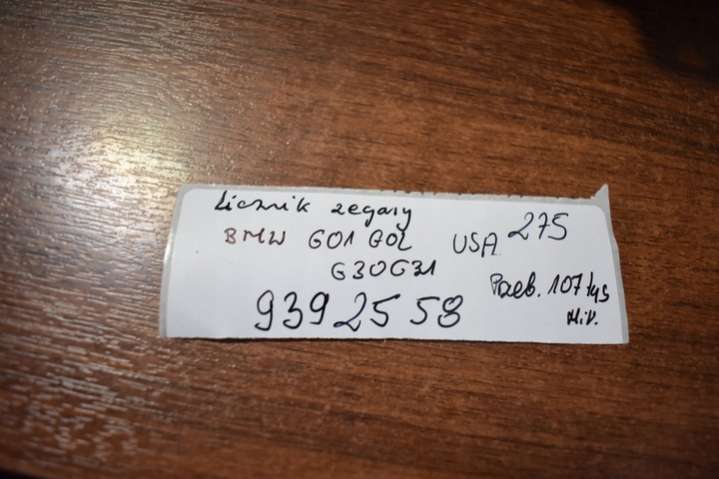 Licznik zegary
BMW G01 G02 USA 275
G30G31
Przeb. 107 tys
Mil.
9392558